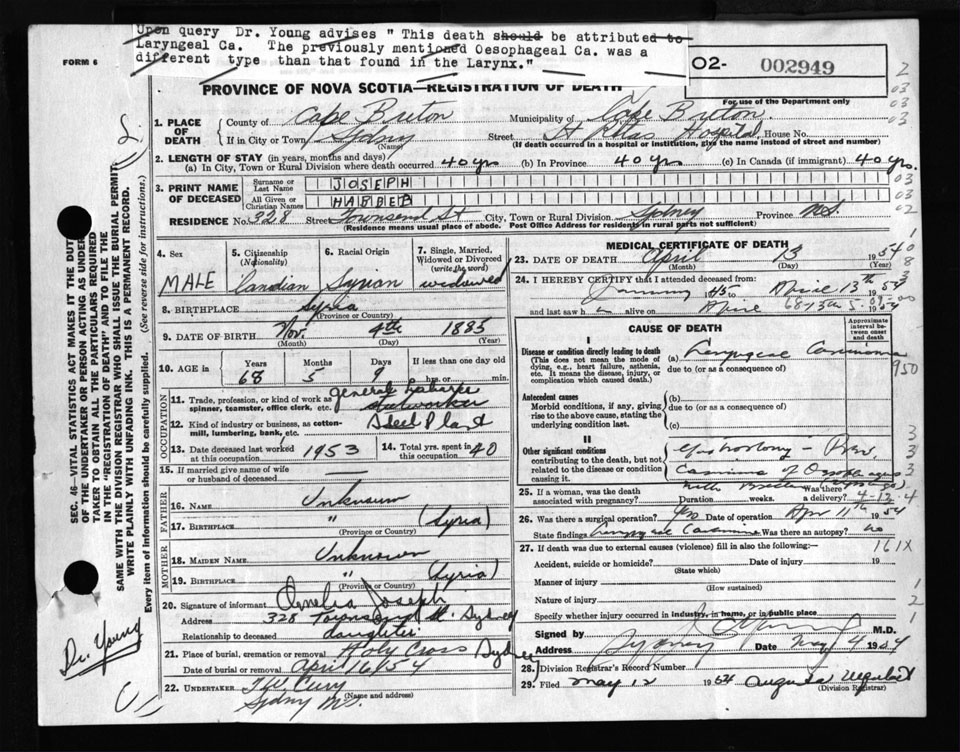 Upon query Dr. Young advises "This death should be attributed to
Laryngeal Ca. The previously mentioned Oesophageal Ca. was a
different type than that found in the Larynx."
FORM 6
O2- 002949
PROVINCE OF NOVA SCOTIA—REGISTRATION OF DEATH
For use of the Department only
1. PLACE OF DEATH
County of Cape Breton Municipality of Cape Breton
If in City or Town Sydney (Name) Street St Ritas Hospital, House No.
(If death occurred in a hospital or institution, give the name instead of street and number)
2. LENGTH OF STAY (in years, months and days)
(a) In City, Town or Rural Division where death occurred 40 yrs (b) In Province 40 yrs. (c) In Canada (if immigrant) 40 yrs.
3. PRINT NAME OF DECEASED
Surname or Last Name JOSEPH
All Given or Christian Names HABEEB
RESIDENCE No. 328 Street Townsend St City, Town or Rural Division Sydney Province N.S.
(Residence means usual place of abode. Post Office Address for residents in rural parts not sufficient)
4. Sex MALE
5. Citizenship (Nationality) Canadian
6. Racial Origin Syrian
7. Single, Married, Widowed or Divorced (write the word) widowed
8. BIRTHPLACE Syria
(Province or Country)
9. DATE OF BIRTH Nov. 4th 1885
(Month) (Day) (Year)
10. AGE in Years 68 Months 5 Days 9 If less than one day old hrs. or min.
OCCUPATION
11. Trade, profession, or kind of work as spinner, teamster, office clerk, etc. general labourer Steelworker
12. Kind of industry or business, as cotton-mill, lumbering, bank, etc. Steel Plant
13. Date deceased last worked at this occupation 1953
14. Total yrs. spent in this occupation 40
15. If married give name of wife or husband of deceased
FATHER
16. NAME Unknown
17. BIRTHPLACE " (Syria)
(Province or Country)
MOTHER
18. MAIDEN NAME Unknown
19. BIRTHPLACE " (Syria)
(Province or Country)
20. Signature of informant Amelia Joseph
Address 328 Townsend St. Sydney
Relationship to deceased daughter
21. Place of burial, cremation or removal Holy Cross Sydney
Date of burial or removal April 16/54
22. UNDERTAKER T.W. Curry
Sydney N.S. (Name and address)
MEDICAL CERTIFICATE OF DEATH
23. DATE OF DEATH April 13 1954
(Month) (Day) (Year)
24. I HEREBY CERTIFY that I attended deceased from:
January to April 13th 1954
and last saw h alive on April 1954
CAUSE OF DEATH
Approximate interval between onset and death
I
Disease or condition directly leading to death (a) Laryngeal Carcinoma
(This does not mean the mode of dying, e.g., heart failure, asthenia, etc. It means the disease, injury, or complication which caused death.)
due to (or as a consequence of)
950
Antecedent causes (b)
Morbid conditions, if any, giving rise to the above cause, stating the underlying condition last.
due to (or as a consequence of)
(c)
II
Other significant conditions contributing to the death, but not related to the disease or condition causing it.
Gastrostomy - Prev.
Carcinoma of Oesophagus
25. If a woman, was the death associated with pregnancy? Duration weeks. Was there a delivery?
26. Was there a surgical operation? Yes Date of operation Apr 11th 1954
State findings Laryngeal Carcinoma Was there an autopsy? no
27. If death was due to external causes (violence) fill in also the following:—
161X
Accident, suicide or homicide? Date of injury 19
(State which)
Manner of injury
(How sustained)
Nature of injury
Specify whether injury occurred in industry, in home, or in public place
Signed by M.D.
Address Sydney Date May 4 1954
28. Division Registrar's Record Number
29. Filed May 12 1954 Augusta
(Division Registrar)
SEC. 46 VITAL STATISTICS ACT MAKES IT THE DUTY
OF THE UNDERTAKER OR PERSON ACTING AS UNDER-
TAKER TO OBTAIN ALL THE PARTICULARS REQUIRED
IN THE "REGISTRATION OF DEATH" AND TO FILE THE
SAME WITH THE DIVISION REGISTRAR WHO SHALL ISSUE THE BURIAL PERMIT.
WRITE PLAINLY WITH UNFADING INK. THIS IS A PERMANENT RECORD.
Every item of information should be carefully supplied. (See reverse side for instructions.)
Dr. Young